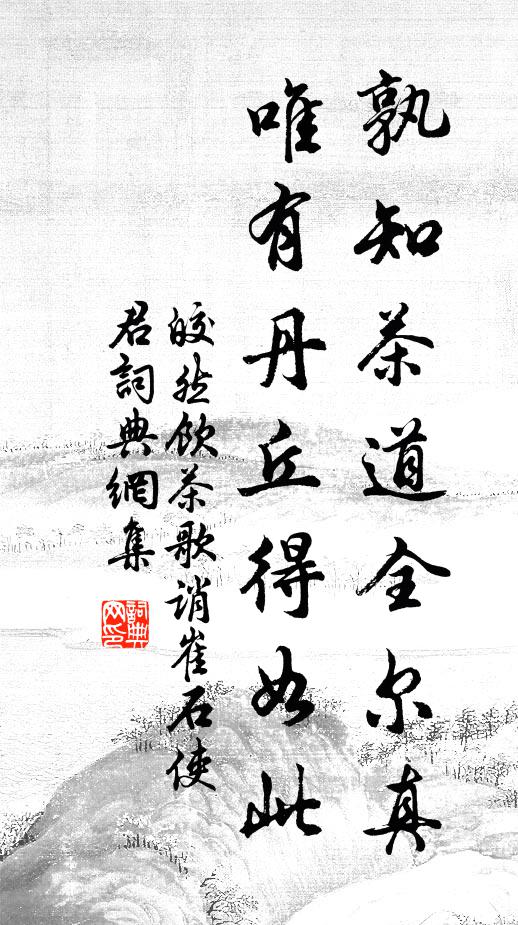 孰知茶道全尔真
唯有丹丘得如此
皎然飲茶歌誚崔石使
君詞典網集
詞典
网印